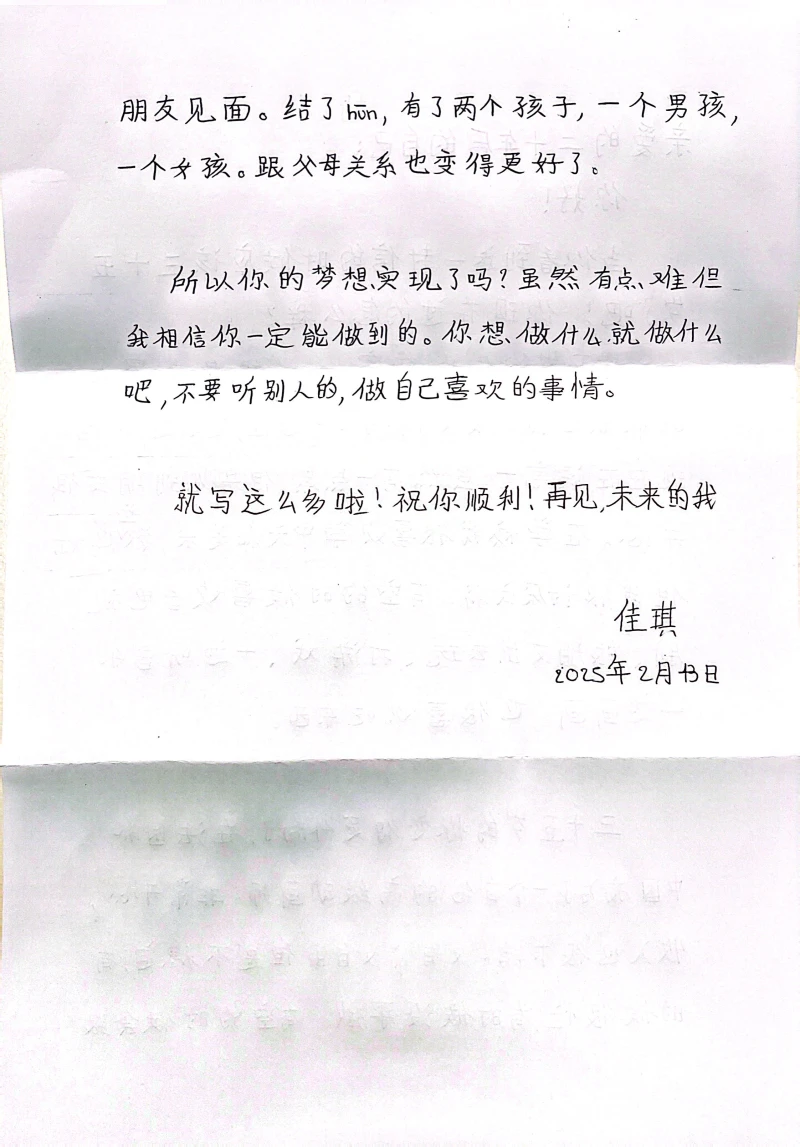 朋友见面。结了hūn, 有了两个孩子, 一个男孩,
一个女孩。跟父母关系也变得更好了。
所以你的梦想实现了吗?虽然有点难但
我相信你一定能做到的。你想做什么就做什么
吧,不要听别人的,做自己喜欢的事情。
就写这么多啦!祝你顺利!再见,未来的我
佳琪
2025年2月13日